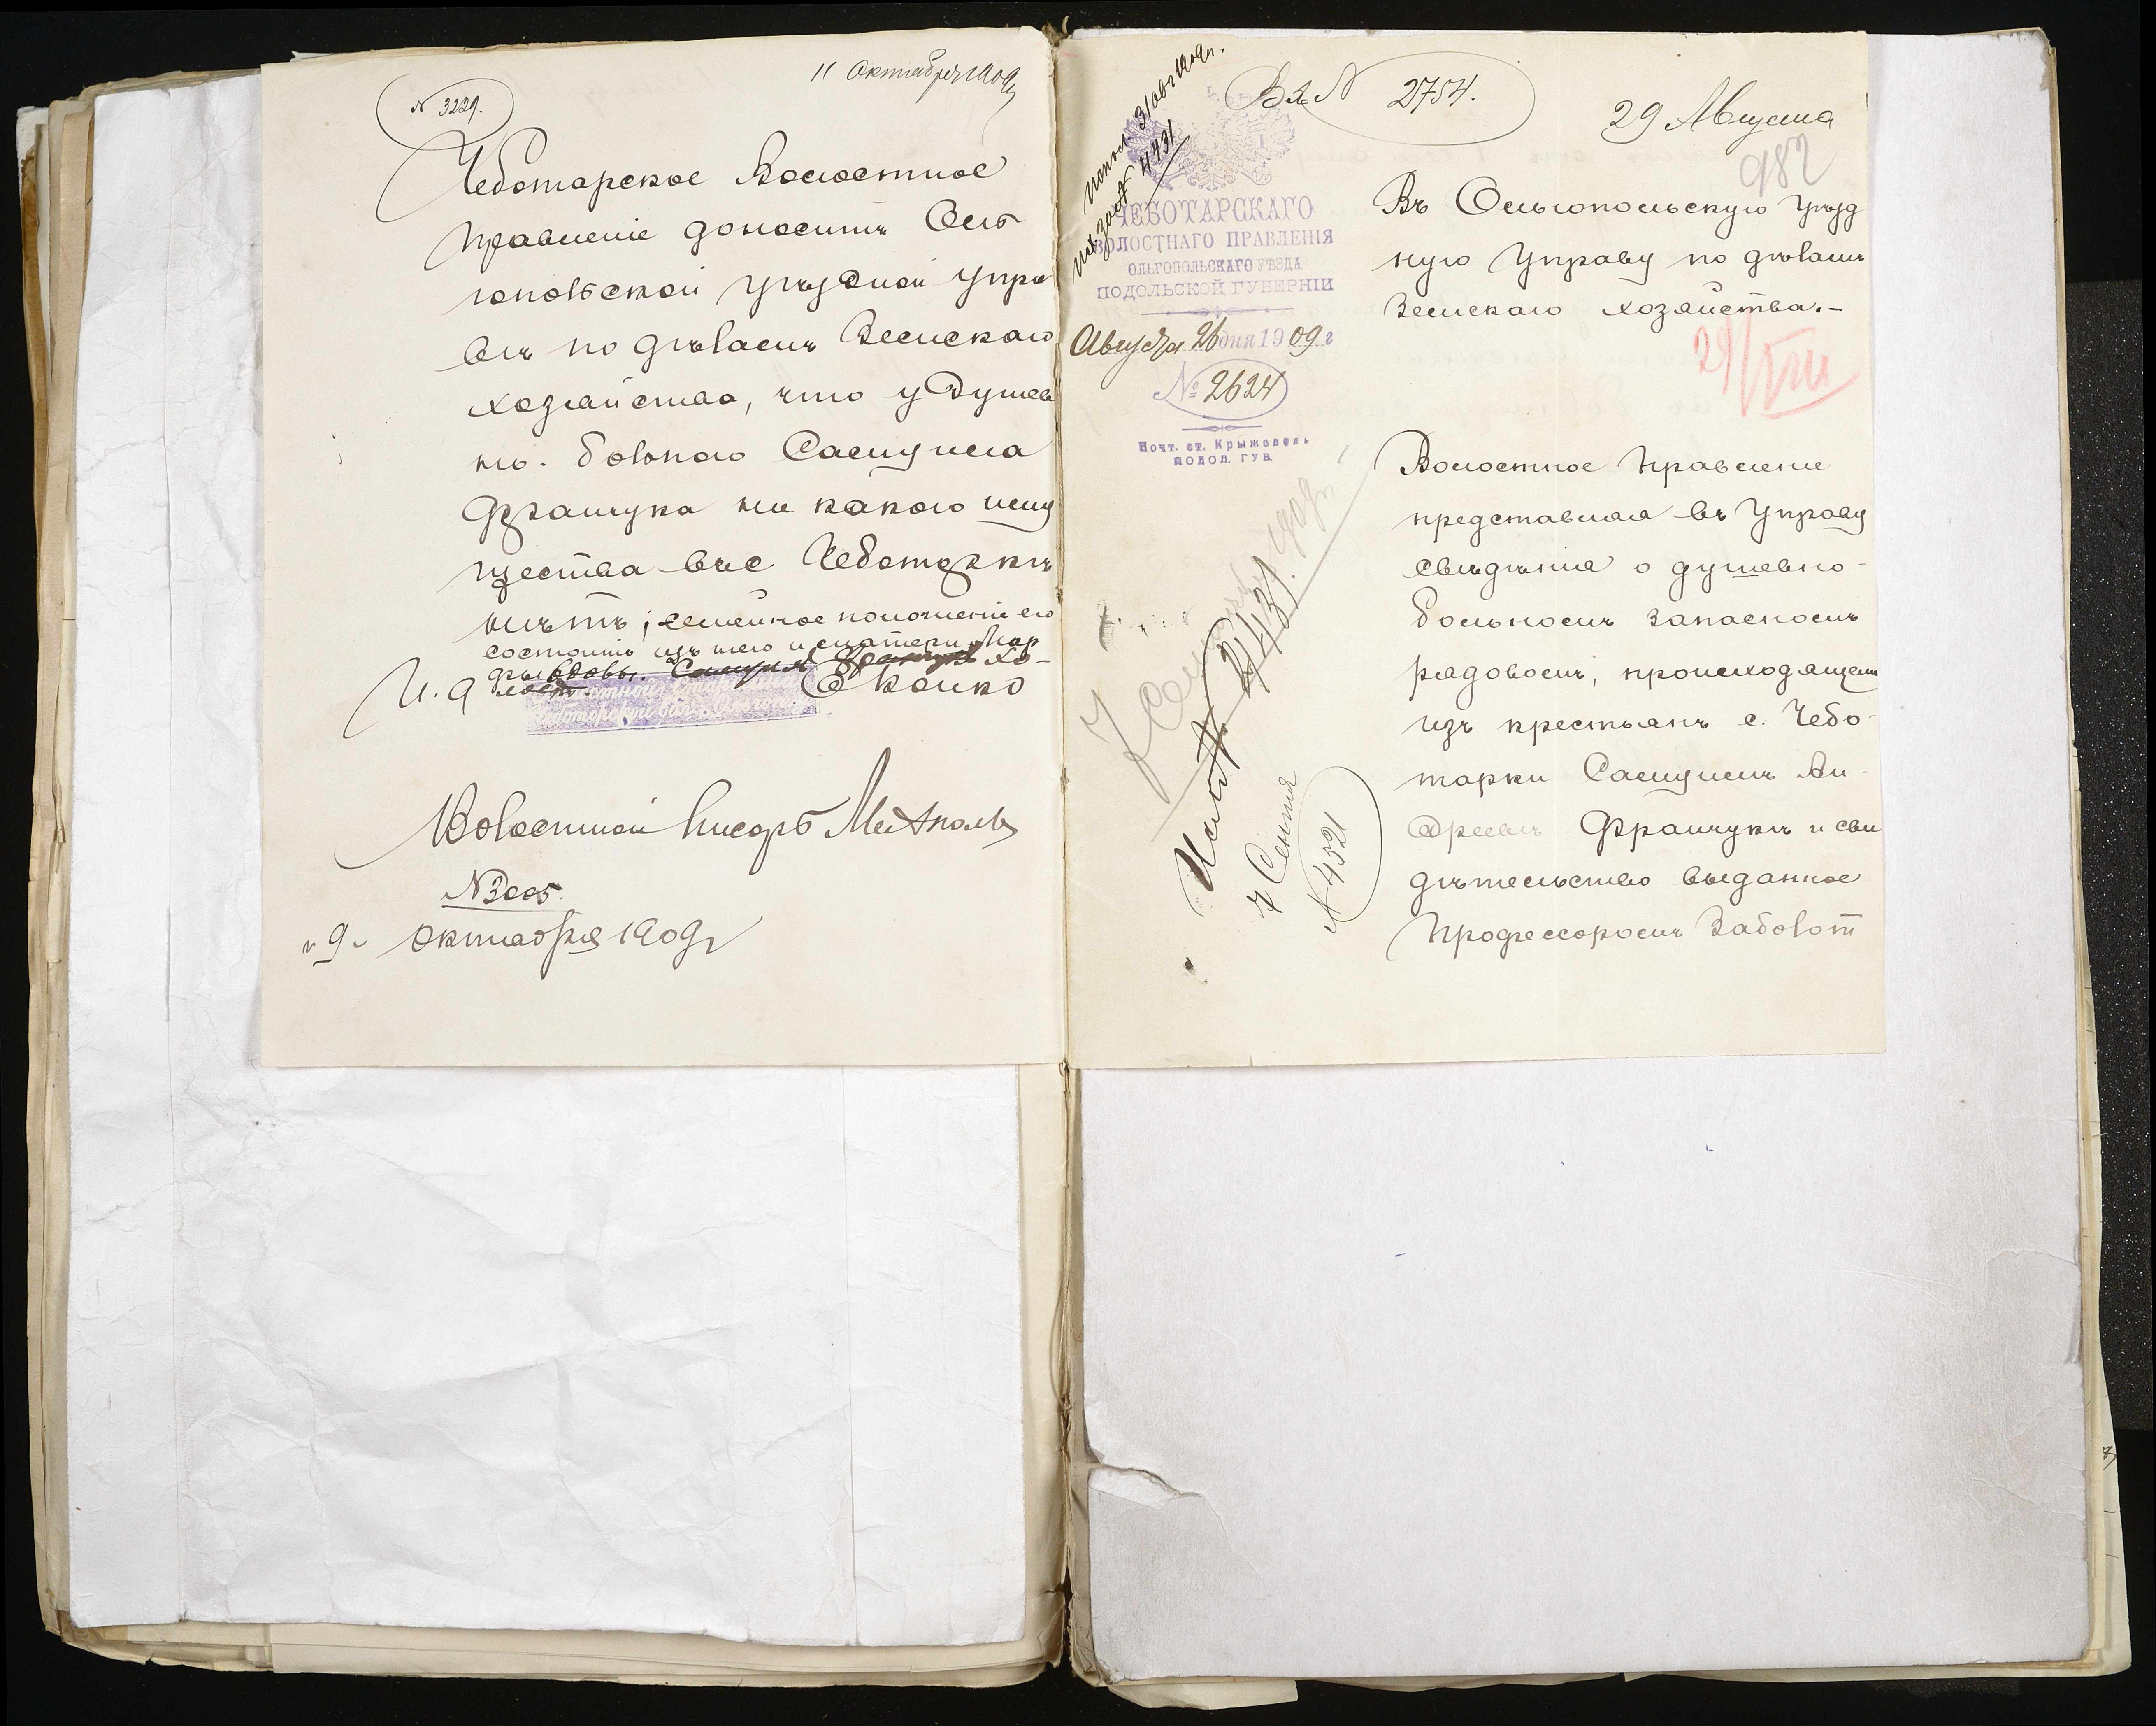 11 Октября 1909 г
№ 3229.
Чеботарское Волостное
Правленіе доноситъ Оль
гопольской Уѣздной Упра
вѣ по дѣламъ Земскаго
хозяйства, что у Душев
но. больного Самуила
Франчука ни какого иму
щества въ с. Чеботаркѣ
нѣтъ; семейное положеніе его
состоитъ изъ него и матери Мар
вдовы.
И. д
Волостной Писарь
№ 3005.
"9" октября 1909 г
Вх № 2754.
29 Августа
982
31 авг 1909 г.
4431
ЧЕБОТАРСКАГО
ВОЛОСТНАГО ПРАВЛЕНІЯ
ОЛЬГОПОЛЬСКАГО УѢЗДА
ПОДОЛЬСКОЙ ГУБЕРНІИ
Августа 26 дня 1909 г
№ 2624
Почт. ст. Крыжополь
ПОДОЛ. ГУБ.
Въ Ольгопольскую Уѣзд
ную Управу по дѣламъ
Земскаго хозяйства.-
29/VIII
Волостное Правленіе
представляя въ Управу
свѣдѣнія о душевно-
больномъ запасномъ
рядовомъ, происходящемъ
изъ крестьянъ с. Чебо-
тарки Самуилѣ Ан-
дреевѣ Франчукѣ и сви
дѣтельство выданное
Профессоромъ Заболот
4431.
7 Сентя
№ 4521